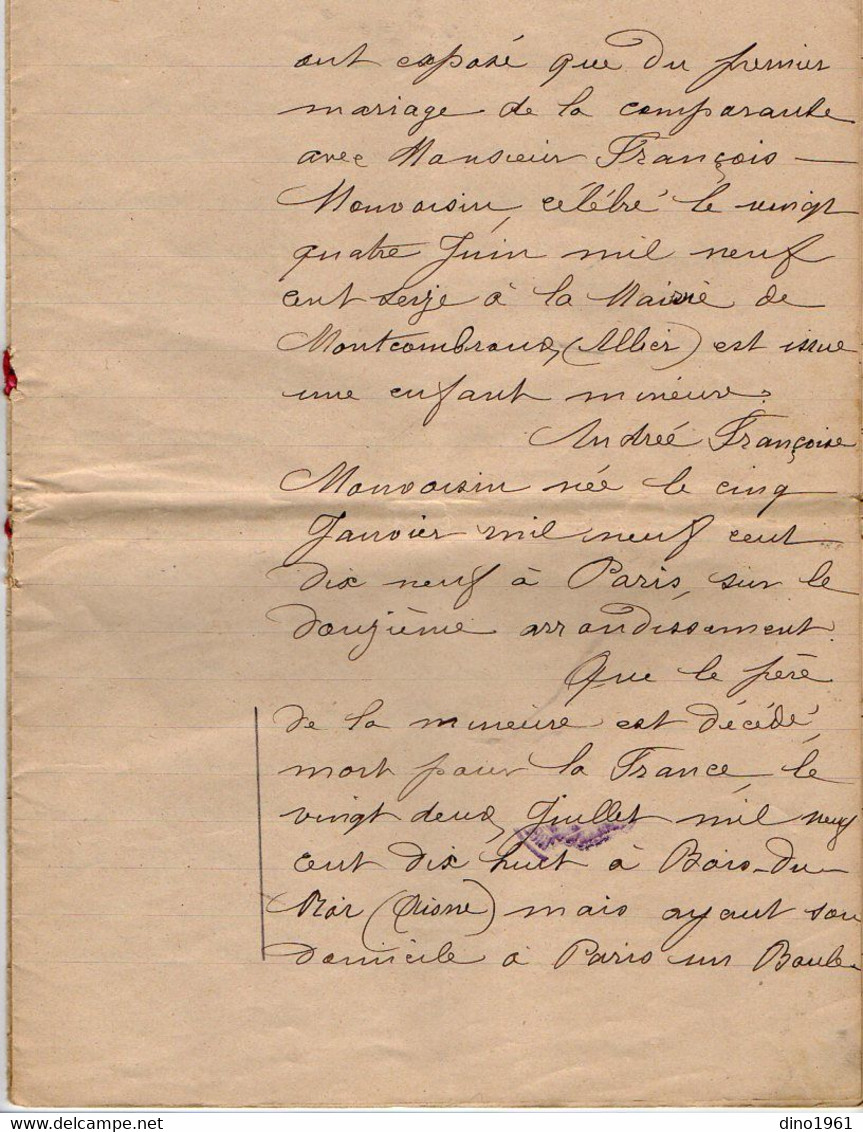 ont exposé que du premier
mariage de la comparante
avec Monsieur François —
Monvoisin, célébré le vingt
quatre Juin mil neuf
cent seize à la Mairie de
Montcombroux, (Allier) est issue
une enfant mineure.
Andrée Françoise
Monvoisin née le cinq
Janvier mil neuf cent
dix neuf à Paris, sur le
douzième arrondissement.
Que le père
de la mineure est décédé,
mort pour la France, le
vingt deux Juillet mil neuf
cent dix huit à Bois-du-
Roi (Aisne) mais ayant son
domicile à Paris un Boule-
dino1961